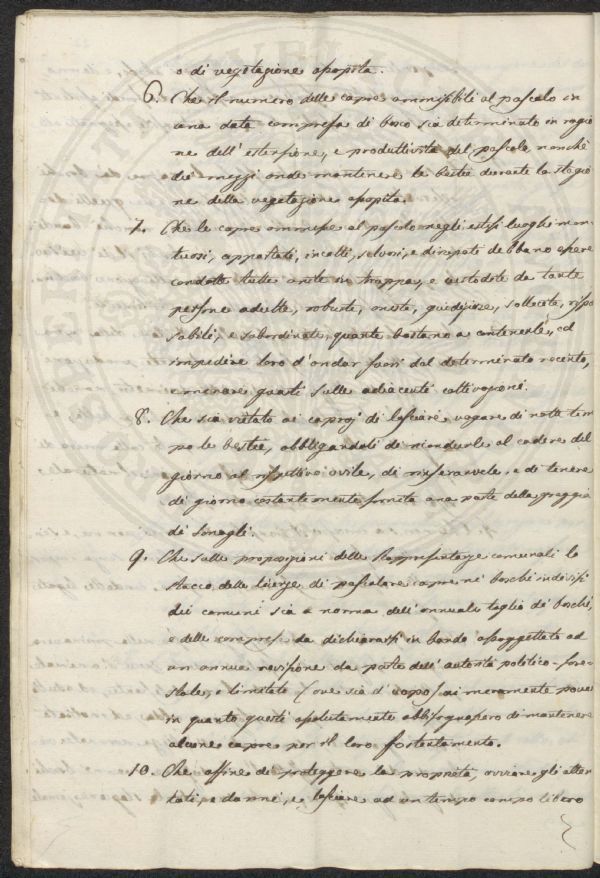 o di vegetazione apposita.
6. Che il numero delle capre ammissibili al pascolo in
una data compresa di bosco sia determinato in ragio
ne dell'estensione, e produttività del pascolo nonchè
dei mezzi onde mantenere le bestie durante la stagio
ne della vegetazione apposita.
7. Che le capre ammesse al pascolo negli estesi luoghi mon
tuosi, appartati, incolti, selvosi, e dirupati debbano essere
condotte tutte unite in truppa, e custodite da tante
persone adulte, robuste, oneste, giudiziose, sollecite, rispo
sabili, e subordinate, quante bastano a contenerle, ed
impedire loro d'andar fuori dal determinato recinto,
e menare guasti sulle adiacenti coltivazioni.
8. Che sia vietato ai caproj di lasciare vagare di notte tem
po le bestie, obbligandoli di ricondurle al cadere del
giorno al rispettivo ovile, di rinserarvele, e di tenere
di giorno costantemente fornita una parte della greggia
di sonagli.
9. Che sulle proposizioni delle Rappresentanze comunali lo
stacco delle licenze di pascolare capre ne' boschi indivisi
dei comuni sia a norma dell'annuale taglio de' boschi,
e delle comprese da dichiararsi in bando assoggettato ad
un annua revisione da parte dell'autorità politico-fore
stale, e limitate (ove sia d'uopo) ai meramente poveri
in quanto questi assolutamente abbisognassero di mantenere
alcune capre per il loro sostentamento.
10. Che affine di proteggere la proprietà, ovviare gli atten
tati, e danni, e lasciare ad un tempo campo libero